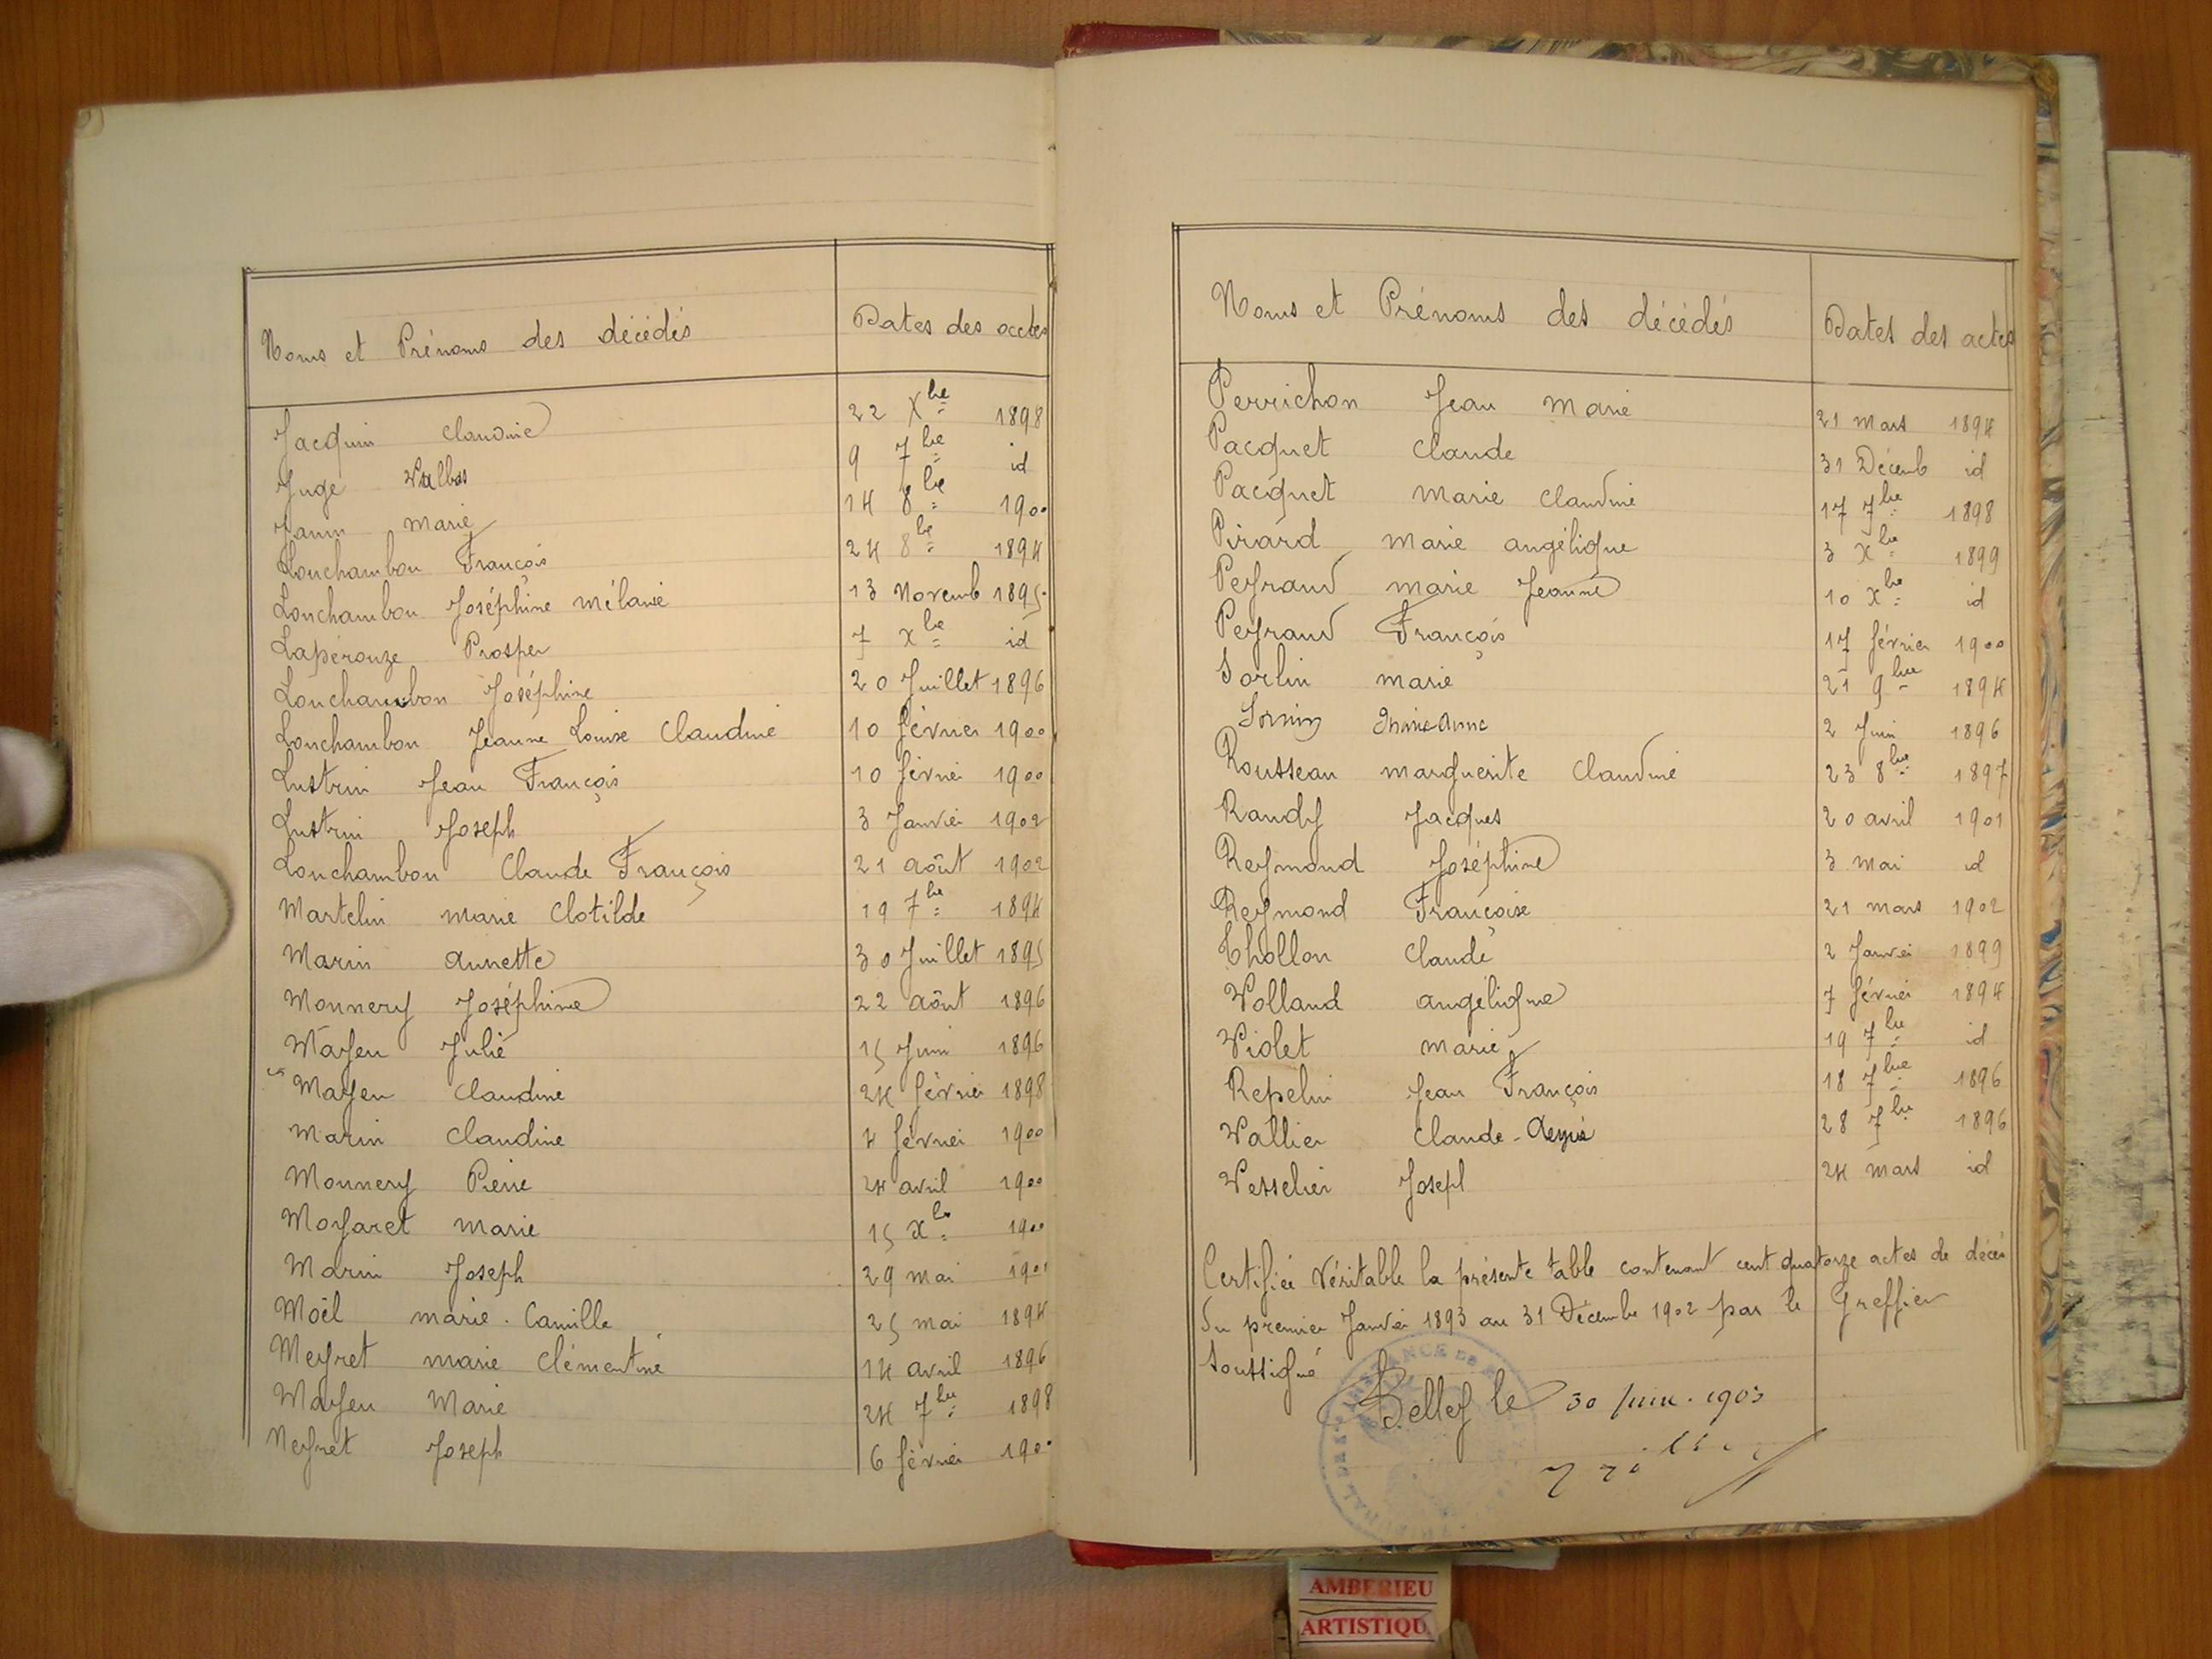 Noms et Prénoms des décédés Dates des actes
Jacquin Claudine 22 Xbre 1898
Juge 9 7bre id
Janin Marie 14 8bre 1900
Lonchambon François 24 8bre 1894
Lonchambon Joséphine Mélanie 13 Novemb 1895
Lapérouze Prosper 7 Xbre id
Lonchambon Joséphine 20 Juillet 1896
Lonchambon Jeanne Louise Claudine 10 février 1900
Lustrin Jean François 10 février 1900
Lustrin Joseph 3 Janvier 1902
Lonchambon Claude François 21 août 1902
Martelin marie Clotilde 19 7bre 1894
Marin annette 30 Juillet 1895
Monnery Joséphine 22 août 1896
Mayeu Julie 15 Juin 1896
Mayeu Claudine 24 février 1898
Marin Claudine 4 février 1900
Monnery Pierre 24 avril 1900
Moyaret marie 15 Xbre 1900
Marin Joseph 29 mai 1901
Moël marie. Camille 25 mai 1894
Meyret marie Clémentine 14 avril 1896
Mayeu Marie 24 7bre 1898
Neyret Joseph 6 février 1900
Noms et Prénoms des décédés Dates des actes
Perrichon Jean Marie 21 mars 1894
Pacquet Claude 31 Décemb id
Pacquet Marie Claudine 17 7bre 1898
Pirard marie angélique 3 Xbre 1899
Peyraud marie Jeanne 10 Xbre id
Peyraud François 17 février 1900
Sorlin marie 21 9bre 1894
Sornin anne 2 Juin 1896
Rousseau marguerite Claudine 23 8bre 1897
Randy Jacques 20 avril 1901
Reymond Joséphine 3 mai id
Reymond Françoise 21 mars 1902
Thollon Claude 2 Janvier 1899
Volland angélique 7 février 1894
Violet marie 19 7bre id
Repelin Jean François 18 7bre 1896
Vallier Claude-Régis 28 7bre 1896
Vesselier Joseph 24 mars id
Certifiée véritable la présente table contenant cent quatorze actes de décès
du premier Janvier 1893 au 31 Décembre 1902 par le Greffier
soussigné
Belley le 30 Juin. 1903
AMBERIEU
ARTISTIQU